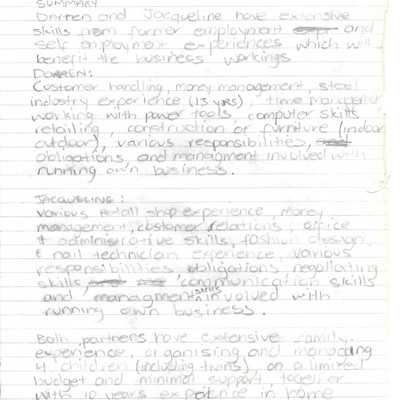 SUMMARY
Darren and Jacqueline have extensive
skills from former employment and
self employment experiences which will
benefit the business workings
DARREN:
Customer handling, money management, steel
industry experience (13 yrs), time management,
working with power tools, computer skills
retailing, construction of furniture (indoor
outdoor), various responsibilities,
obligations, and managment involved with
running own business.
JACQUELINE:
various retail shop experience, money
management, customer relations, office
& administrative skills, fashion design,
& nail technician experience, various
responsibilities, obligations negotiating
skills, communication skills
and managment skills involved with
running own business.
Both partners have extensive family
experience, organising and managing
4 children (including twins), on a limited
budget and minimal support, together
with 10 years experience in home